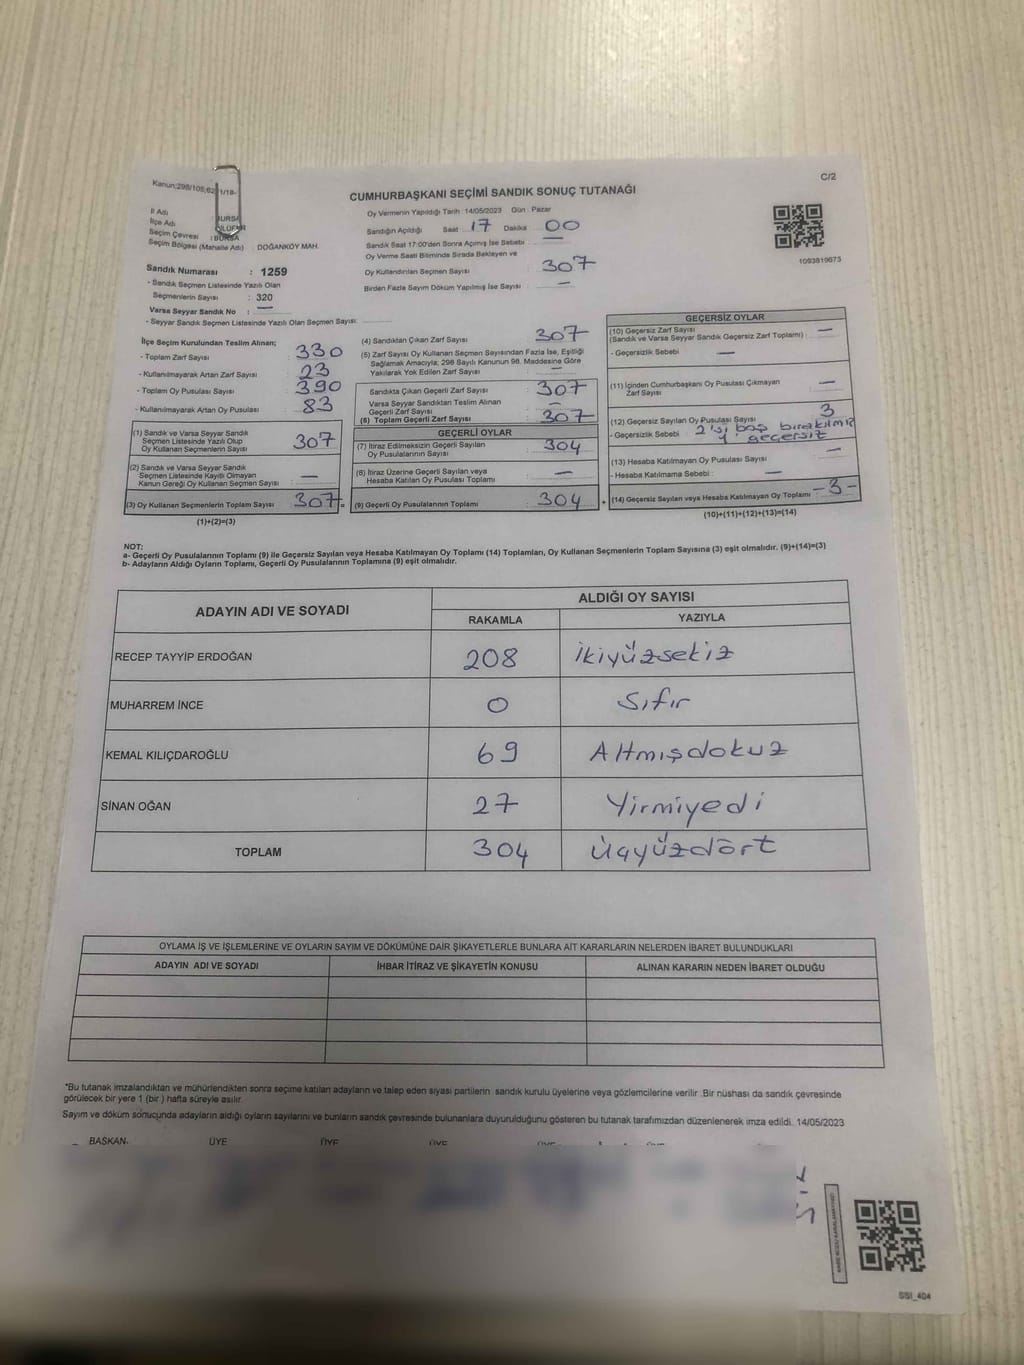 C/2
Kanun:298/105,62 1/18-
CUMHURBAŞKANI SEÇİMİ SANDIK SONUÇ TUTANAĞI
İl Adı BURSA
İlçe Adı NİLÜFER
Seçim Çevresi : BURSA
Seçim Bölgesi (Mahalle Adı) : DOĞANKÖY MAH.
Oy Vermenin Yapıldığı Tarih : 14/05/2023 Gün : Pazar
Sandığın Açıldığı Saat 17 Dakika 00
Sandık Saat 17:00'den Sonra Açımış İse Sebebi —
Oy Verme Saati Bitiminde Sırada Bekleyen ve
Oy Kullandırılan Seçmen Sayısı : 307
Birden Fazla Sayım Döküm Yapılmış İse Sayısı : —
1093819673
Sandık Numarası : 1259
- Sandık Seçmen Listesinde Yazılı Olan
Seçmenlerin Sayısı : 320
Varsa Seyyar Sandık No : —
- Seyyar Sandık Seçmen Listesinde Yazılı Olan Seçmen Sayısı:
İlçe Seçim Kurulundan Teslim Alınan;
- Toplam Zarf Sayısı : 330
- Kullanılmayarak Artan Zarf Sayısı : 23
- Toplam Oy Pusulası Sayısı : 390
- Kullanılmayarak Artan Oy Pusulası : 83
(1) Sandık ve Varsa Seyyar Sandık
Seçmen Listesinde Yazılı Olup
Oy Kullanan Seçmenlerin Sayısı : 307
(2) Sandık ve Varsa Seyyar Sandık
Seçmen Listesinde Kayıtlı Olmayan
Kanun Gereği Oy Kullanan Seçmen Sayısı : —
(3) Oy Kullanan Seçmenlerin Toplam Sayısı : 307 =
(1)+(2)=(3)
(4) Sandıktan Çıkan Zarf Sayısı : 307
(5) Zarf Sayısı Oy Kullanan Seçmen Sayısından Fazla İse, Eşitliği
Sağlamak Amacıyla; 298 Sayılı Kanunun 98. Maddesine Göre
Yakılarak Yok Edilen Zarf Sayısı : —
Sandıkta Çıkan Geçerli Zarf Sayısı : 307
Varsa Seyyar Sandıktan Teslim Alınan
Geçerli Zarf Sayısı : —
(6) Toplam Geçerli Zarf Sayısı : 307
GEÇERLİ OYLAR
(7) İtiraz Edilmeksizin Geçerli Sayılan
Oy Pusulalarının Sayısı : 304
(8) İtiraz Üzerine Geçerli Sayılan veya
Hesaba Katılan Oy Pusulası Toplamı : —
(9) Geçerli Oy Pusulalarının Toplamı : 304 +
GEÇERSİZ OYLAR
(10) Geçersiz Zarf Sayısı
(Sandık ve Varsa Seyyar Sandık Geçersiz Zarf Toplamı) : —
- Geçersizlik Sebebi : —
(11) İçinden Cumhurbaşkanı Oy Pusulası Çıkmayan
Zarf Sayısı : —
(12) Geçersiz Sayılan Oy Pusulası Sayısı : 3
- Geçersizlik Sebebi : 2'si boş bırakılmış
geçersiz
(13) Hesaba Katılmayan Oy Pusulası Sayısı : —
- Hesaba Katılmama Sebebi : —
(14) Geçersiz Sayılan veya Hesaba Katılmayan Oy Toplamı : -3-
(10)+(11)+(12)+(13)=(14)
NOT:
a- Geçerli Oy Pusulalarının Toplamı (9) ile Geçersiz Sayılan veya Hesaba Katılmayan Oy Toplamı (14) Toplamları, Oy Kullanan Seçmenlerin Toplam Sayısına (3) eşit olmalıdır. (9)+(14)=(3)
b- Adayların Aldığı Oyların Toplamı, Geçerli Oy Pusulalarının Toplamına (9) eşit olmalıdır.
ADAYIN ADI VE SOYADI ALDIĞI OY SAYISI
RAKAMLA YAZIYLA
RECEP TAYYİP ERDOĞAN 208 ikiyüzsekiz
MUHARREM İNCE 0 Sıfır
KEMAL KILIÇDAROĞLU 69 Altmışdokuz
SİNAN OĞAN 27 Yirmiyedi
TOPLAM 304 Üçyüzdört
OYLAMA İŞ VE İŞLEMLERİNE VE OYLARIN SAYIM VE DÖKÜMÜNE DAİR ŞİKAYETLERLE BUNLARA AİT KARARLARIN NELERDEN İBARET BULUNDUKLARI
ADAYIN ADI VE SOYADI İHBAR İTİRAZ VE ŞİKAYETİN KONUSU ALINAN KARARIN NEDEN İBARET OLDUĞU
*Bu tutanak imzalandıktan ve mühürlendikten sonra seçime katılan adayların ve talep eden siyasi partilerin sandık kurulu üyelerine veya gözlemcilerine verilir. Bir nüshası da sandık çevresinde
görülecek bir yere 1 (bir) hafta süreyle asılır.
Sayım ve döküm sonucunda adayların aldığı oyların sayılarını ve bunların sandık çevresinde bulunanlara duyurulduğunu gösteren bu tutanak tarafımızdan düzenlenerek imza edildi. 14/05/2023
BAŞKAN ÜYE ÜYE ÜYE ÜYE ÜYE
SSI_404